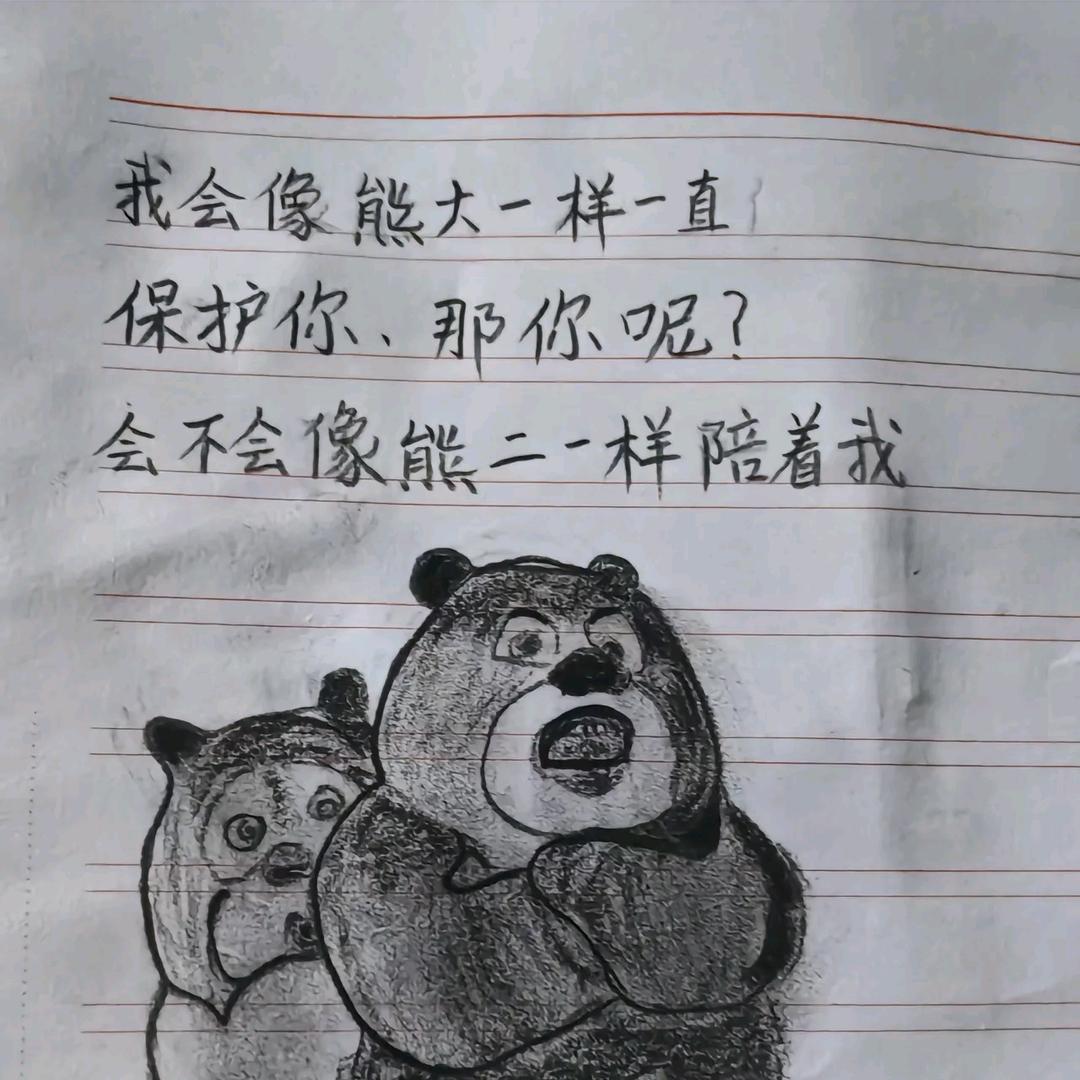 我会像熊大一样一直
保护你、那你呢?
会不会像熊二一样陪着我